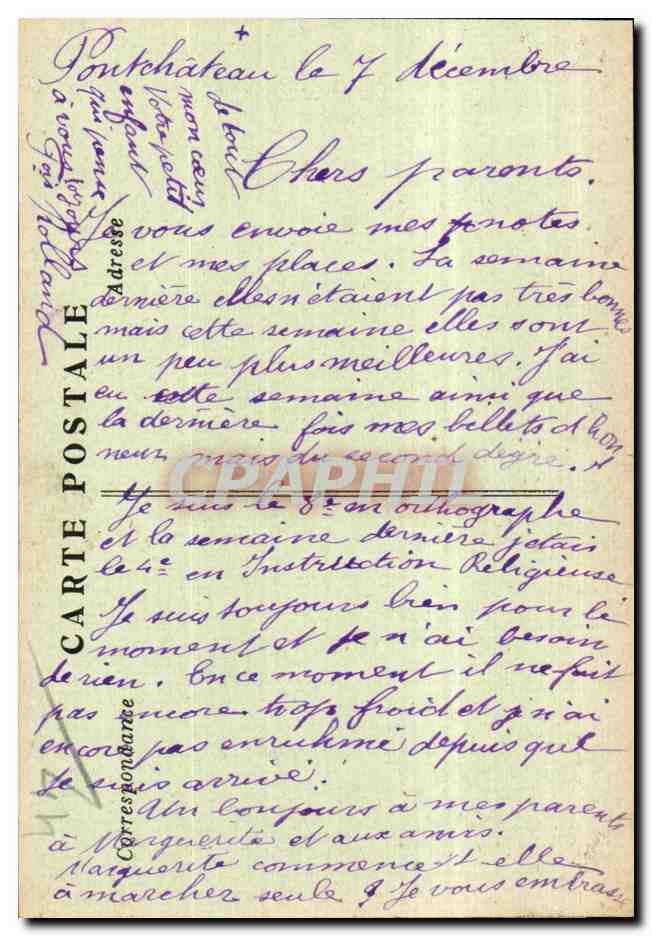 +
Pontchâteau le 7 décembre
Chers parents.
Je vous envoie mes notes
et mes places. La semaine
dernière elles n'étaient pas très bonnes
mais cette semaine elles sont
un peu plus meilleures. J'ai
eu cette semaine ainsi que
la dernière fois mes billets d'hon-
neur mais du second degré.
Je suis le 8e en orthographe
et la semaine dernière j'etais
le 4e en Instruction Religieuse
Je suis toujours bien pour le
moment et je n'ai besoin
de rien. En ce moment il ne fait
pas encore trop froid et je n'ai
encore pas enruhmé depuis que
je suis arrivé.
Un bonjours à mes parents
à Marguerite et aux amis.
Marguerite commence t elle
à marcher seule ? Je vous embrasse
de tout
mon cœur
Votre petit
enfant
qui pense
à vous toujours
Rolland
CARTE POSTALE
Adresse
Correspondance
CPAPHIL